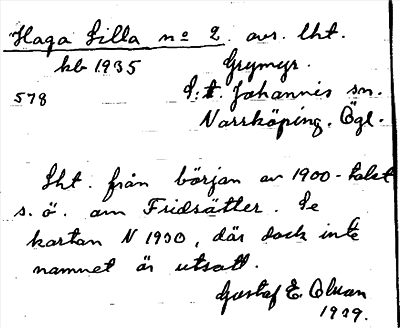 Haga Lilla nº 2. avs. lht.
kb 1935 Grymyr.
578 S:t. Johannis sn.
Norrköping. Ögl.
Lht. från början av 1900-talet
s. ö. om Fridsätter. Se
kartan N 1930, där dock inte
namnet är utsatt.
Gustaf E. Olsson
1939.